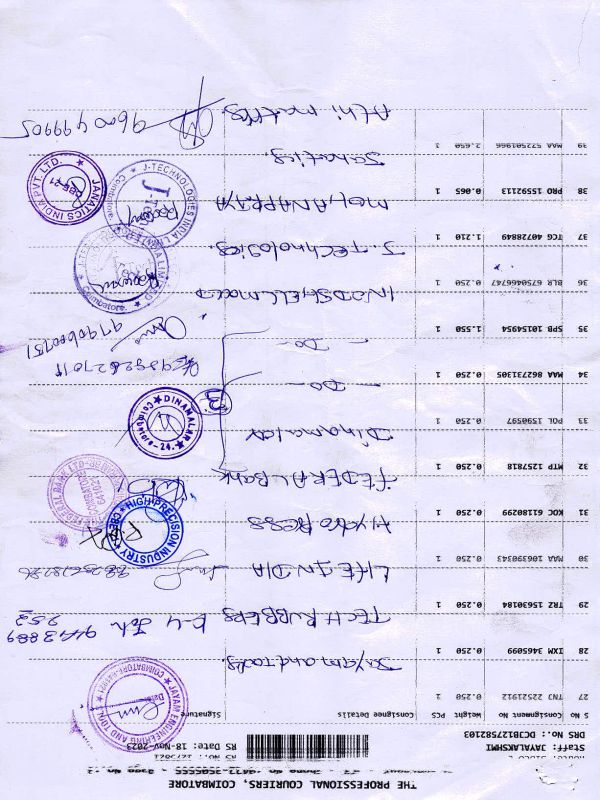 THE PROFESSIONAL COURIERS, COIMBATORE
Staff: JAYALAKSHMI RS Date: 18-Nov-2023
DRS No.:
S No Consignment No Weight PCS Consignee Details Signature
27 TNJ 22521912 0.250 1 Jayam and tools.
JAYAM ENGINEERING AND TOOLS COIMBATORE
28 IXM 3465099 0.250 1 TECH RUBBERS
29 TRZ 15630184 0.250 1 LIFE INDIA
30 MAA 106390343 0.250 1 HYDROPRESS
HIGH PRECISION INDUSTRY CBE
31 KOC 61180299 0.250 1 FEDERAL BANK
FEDERAL BANK LTD
32 MTP 1257818 0.250 1 Dinamalar
DINAMALAR Coimbatore-24.
33 POL 1590597 0.250 1 - Do -
3
34 MAA 862731305 0.250 1 - Do -
35 SPB 10154954 1.550 1 INDOSHELL MOULD
9790600751
36 BLR 6750466747 0.250 1 J. Technologies.
J-TECHNOLOGIES INDIA LIMITED Coimbatore.
37 TCG 40728849 1.210 1
J-TECHNOLOGIES INDIA LIMITED Coimbatore
38 PRO 15592113 0.065 1 Janatics.
JANATICS INDIA PVT. LTD. CBE-21
39 MAA 572501966 2.650 1
9600499905